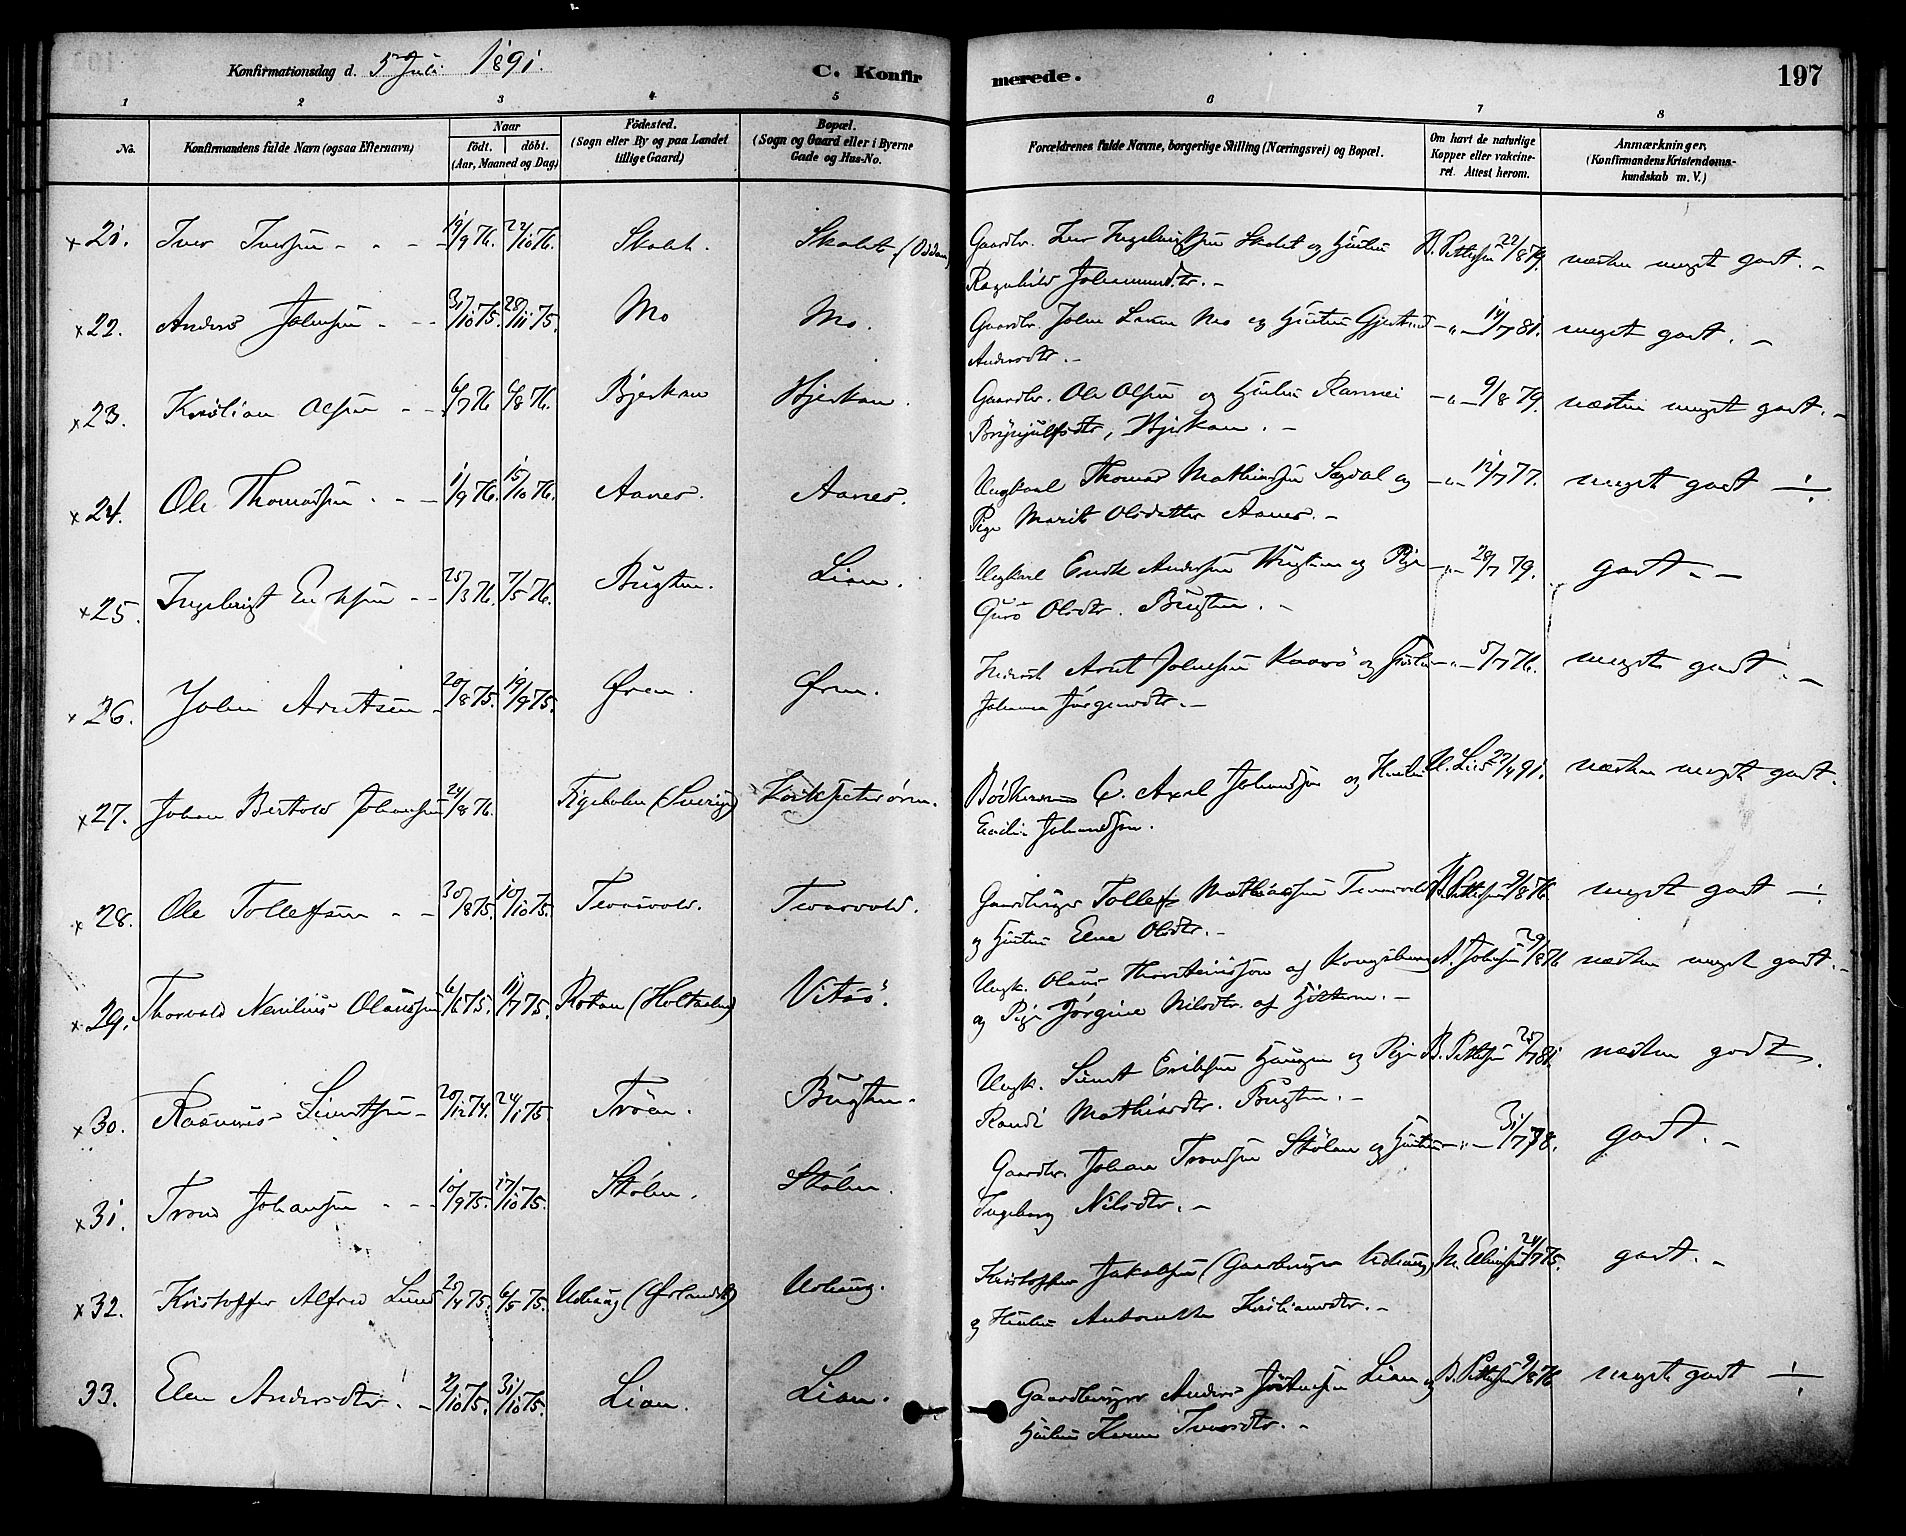 Konfirmationsdag d. 5te Juli 1891.
C. Konfirmerede.
197
1 2 3 4 5 6 7 8
No.
Konfirmandens fulde Navn (ogsaa Efternavn)
Naar
födt. döbt.
(Aar, Maaned og Dag)
Födested.
(Sogn eller By og paa Landet
tillige Gaard)
Bopæl.
(Sogn og Gaard eller i Byerne
Gade og Hus-No.
Forældrenes fulde Navne, borgerlige Stilling (Næringsvei) og Bopæl.
Om havt de naturlige
Kopper eller vakcine-
ret. Attest herom.
Anmærkninger,
(Konfirmandens Kristendoms-
kundskab m. V.)
x 21. Iver Iversen - - - 19/9 76. 22/10 76. Skalet. Skalet (Oddan) Gaardbr. Iver Ingebrigtsen Skalet og Hustru B. Pettersen 22/8 79. næsten meget godt. -
Ragnhild Johannesdtr. -
x 22. Anders Johnsen - - - 31/10 75. 28/11 75. Mo Mo. Gaardbr. John Larsen Mo og Hustru Gjertrud - " - 14/7 81. meget godt. -
Andersdtr. -
x 23. Kristian Olsen - - 6/7 76 6/8 76. Bjerkan Hjerkan. Gaardbr. Ole Olsen og Hustru Rannei - " - 9/8 79. næsten meget godt. -
Brynjulfsdtr, Hjerkan. -
x 24. Ole Thomassen. - - 1/9 76. 15/10 76. Aanes. Aanes. Ungkarl Thomas Mathiassen Sagdal og - " - 12/7 77. meget godt -
Pige Marit Olsdatter Aanes. -
x 25. Ingebrigt Eriksen - - 25/3 76. 7/5 76. Bugten. Lian. Ungkarl Erik Andersen Haugan og Pige - " - 28/7 79. godt. -
Guro Olsdtr. Bugten. -
x 26. John Arntsen - 20/8 75. 19/9 75. Øren. Øren. Arnt Johnsen Kaarø og Hustru - " - 5/7 76. meget godt. -
Johanna Jørgensdtr. -
x 27. Johan Bertold Johansen 24/8 76. Figeholm (Sverige) Bødkeren C. Axel Johansson og Hustru A. Lies 27/4 91. næsten meget godt.
Emilie Johansson.
x 28. Ole Tollefsen - - 30/8 75. 10/10 75. Tevasvold. Tevasvold. Gaardbruger Tollef Mathiassen Tevasvold B. Pettersen 9/8 76. meget godt -
og Hustru Elen Olsdtr. -
x 29. Thorvald Nemilius Olaussen 6/6 75. 11/7 75. Rotan (Holtaalen) Vitsø. Ungk. Olaus Thorsteinsson af Kongsberg A. Johnsen 29/8 76 næsten meget godt. -
og Pige Jørgine Nilsdtr. af Hitteren. -
x 30. Rasmus Sivertsen - 20/12 74. 24/1 75. Trøen. Bugten. Ungk. Sivert Eriksen Haugen og Pige B. Pettersen 25/7 81. næsten godt.
Randi Mathiasdtr. Bugten. -
x 31. Trond Johansen - - - 10/9 75. 17/10 75. Stølen. Stølen. Gaardbr. Johan Trondsen Stølan og Hustru - " - 31/7 78. godt. -
Ingeborg Nilsdtr. -
x 32. Kristoffer Alfred Lund 20/4 75. 6/5 75. Udhaug (Ørlandet) Udhaug. Kristoffer Jakobsen (Gaardbruger Udhaug) 24/7 75. godt. -
og Hustru Antonette Kristiansdtr. -
33. Elen Andersdtr. - 2/10 75. 31/10 75. Lian. Lian. Gaardbruger Anders Lian og B. Pettersen 9/8 76 meget godt -
Hustru Karen Iversdtr. -